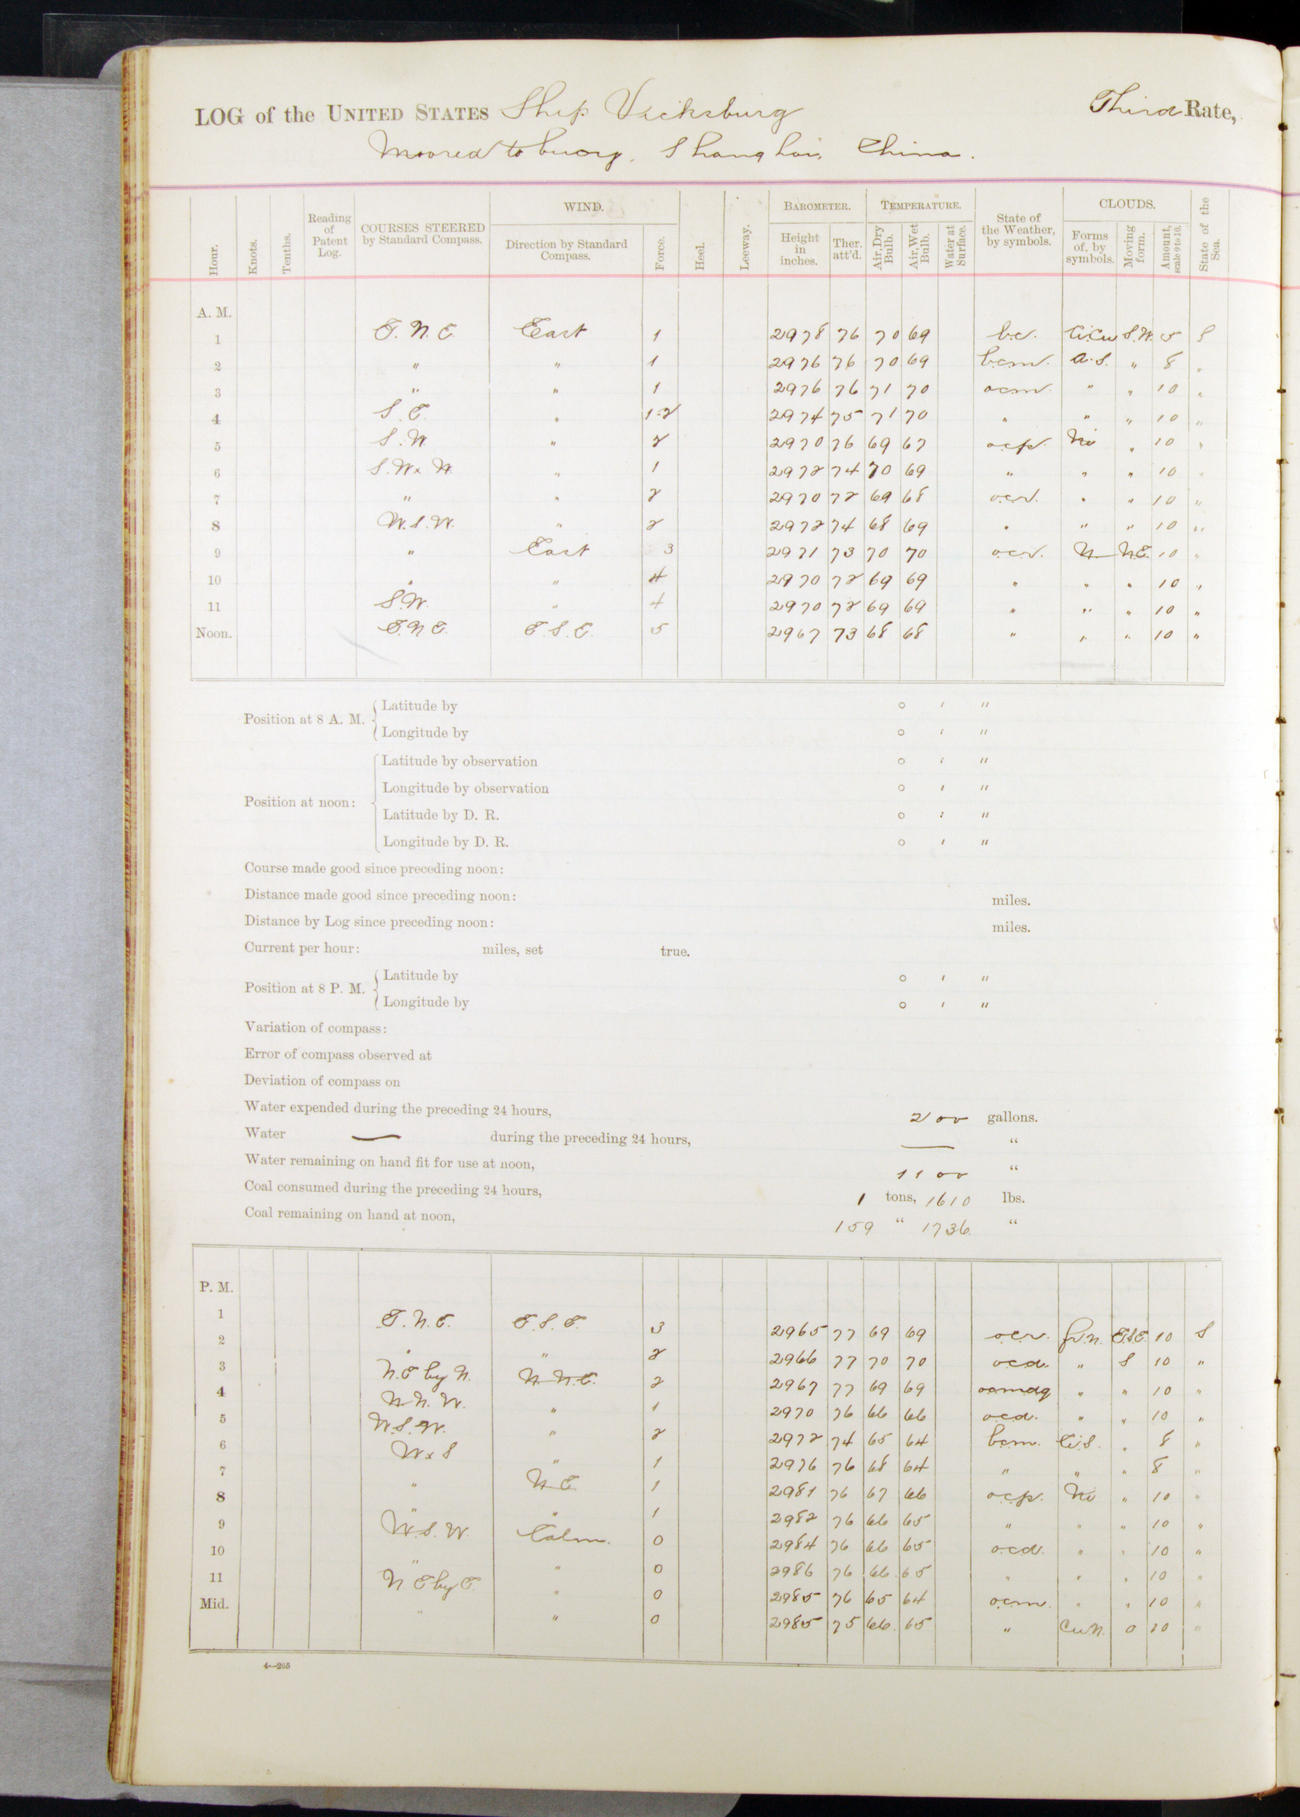 LOG of the UNITED STATES Ship Vicksburg Third Rate,
Moored to buoy, Shanghai, China.
WIND. BAROMETER. TEMPERATURE. CLOUDS.
Hour. Knots. Tenths. Reading of Patent Log. COURSES STEERED by Standard Compass. Direction by Standard Compass. Force. Heel. Leeway. Height in inches. Ther. att'd. Air, Dry Bulb. Air, Wet Bulb. Water at Surface. State of the Weather, by symbols. Forms of, by symbols. Moving form. Amount, scale 0 to 10. State of the Sea.
A. M.
1 E.N.E. East 1 2978 76 70 69 b.c. Ci.Cu S.W. 5 S
2 " " 1 2976 76 70 69 bcm. A.S. " 8 "
3 " " 1 2976 76 71 70 ocm. " " 10 "
4 S.E. " 1-2 2974 75 71 70 " " " 10 "
5 S.W " 2 2970 76 69 67 ocp. Ni " 10 "
6 S.W x W. " 1 2972 74 70 69 " " " 10 "
7 " " 2 2970 72 69 68 " " 10 "
8 W.S.W. " 2 2972 74 68 69 " " " 10 "
9 " East 3 2971 73 70 70 ocr. N N.E. 10 "
10 " " 4 2970 72 69 69 " " " 10 "
11 S.W. " 4 2970 72 69 69 " " " 10 "
Noon. E.N.E. E.S.E. 5 2967 73 68 68 " " " 10 "
Position at 8 A. M. Latitude by ° ' "
Longitude by ° ' "
Position at noon: Latitude by observation ° ' "
Longitude by observation ° ' "
Latitude by D. R. ° ' "
Longitude by D. R. ° ' "
Course made good since preceding noon:
Distance made good since preceding noon: miles.
Distance by Log since preceding noon: miles.
Current per hour: miles, set true.
Position at 8 P. M. Latitude by ° ' "
Longitude by ° ' "
Variation of compass:
Error of compass observed at
Deviation of compass on
Water expended during the preceding 24 hours, 200 gallons.
Water — during the preceding 24 hours, — "
Water remaining on hand fit for use at noon, 1100 "
Coal consumed during the preceding 24 hours, 1 tons, 1610 lbs.
Coal remaining on hand at noon, 159 " 1736 "
P. M.
1 E.N.E. E.S.E. 3 2965 77 69 69 ocr. E.S.E. 10 S
2 " " 2 2966 77 70 70 ocd. " S 10 "
3 N.E by N. N.N.E. 2 2967 77 69 69 oomdq " " 10 "
4 N.N.W. " 1 2970 76 66 66 ocd. " " 10 "
5 W.S.W. " 2 2972 74 65 64 bcm. Ci.S. " 8 "
6 W x S " 1 2976 76 68 64 " " " 8 "
7 " N.E. 1 2981 76 67 66 ocp. Ni " 10 "
8 " " 1 2982 76 66 65 " " " 10 "
9 W.S.W. Calm. 0 2984 76 66 65 ocd. " " 10 "
10 " " 0 2986 76 66 65 " " " 10 "
11 N E by E. " 0 2985 76 65 64 ocm. " " 10 "
Mid. " " 0 2985 75 66 65 " Cu.N. 0 10 "
4—205